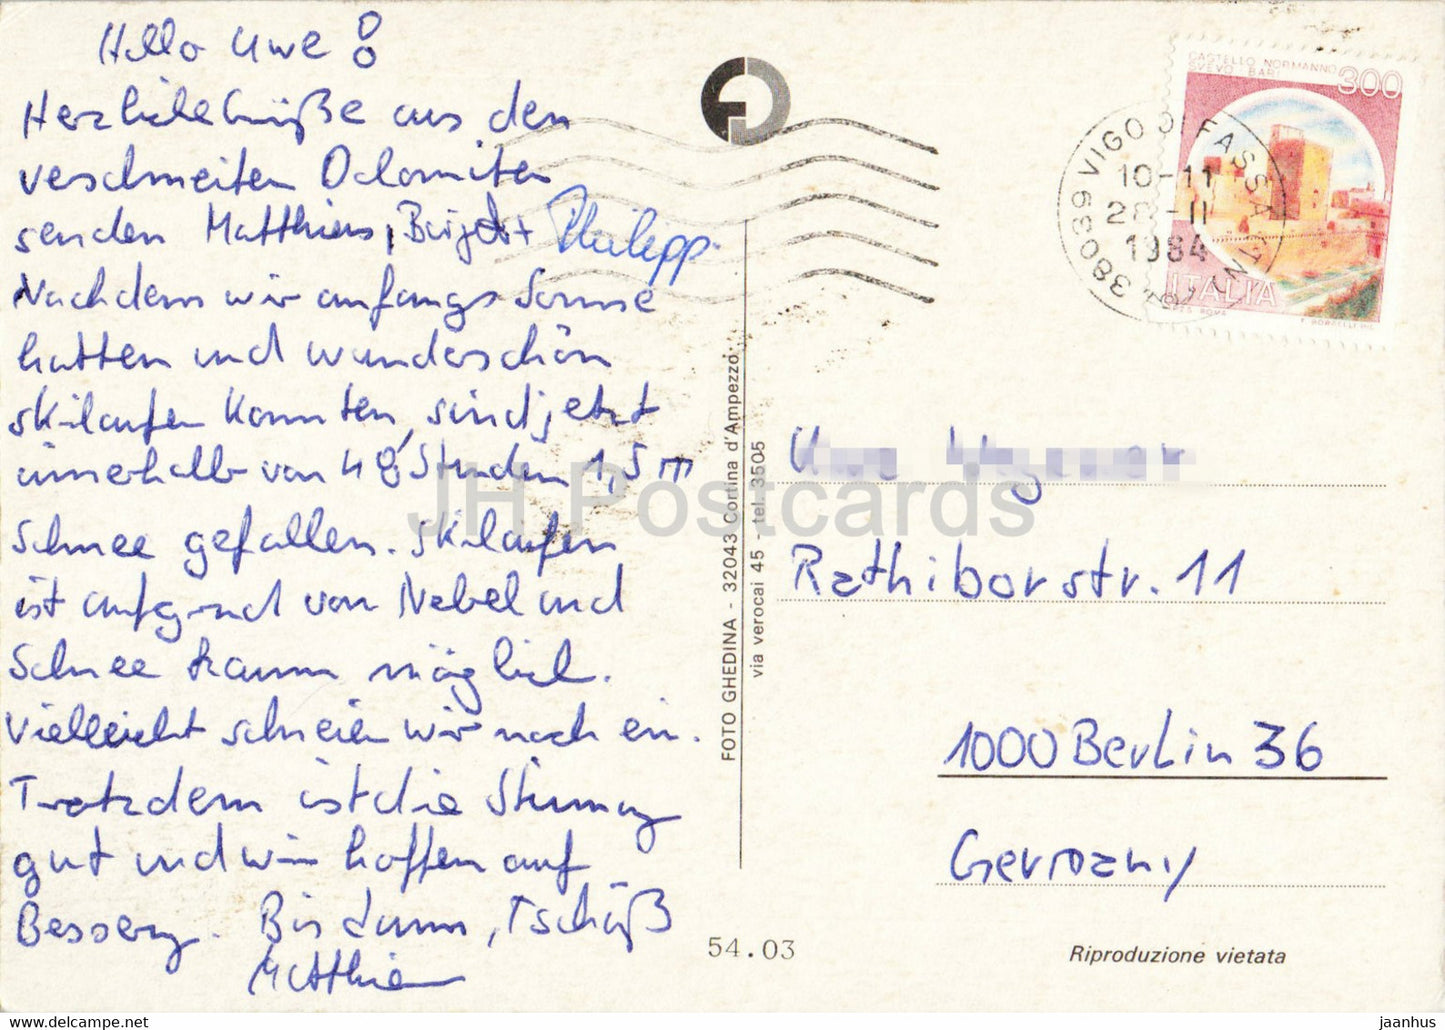 Hello Uwe!
Herzliche Grüße aus den
verschneiten Dolomiten
senden Matthias, Birgit + Philipp.
Nachdem wir anfangs Sonne
hatten und wunderschön
skilaufen konnten, sind jetzt
innerhalb von 48 Stunden 1,5 m
Schnee gefallen. Skilaufen
ist aufgrund von Nebel und
Schnee kaum möglich.
Vielleicht schneien wir noch ein.
Trotzdem ist die Stimmung
gut und wir hoffen auf
Besserung. Bis dann, Tschüß
Matthias
FOTO GHEDINA - 32043 Cortina d'Ampezzo
via verocai 45 - tel. 3505
54.03
CASTELLO NORMANNO
SVEVO BARI
300
ITALIA
38039 VIGO DI FASSA (TN)
10-11
28-II
1984
Uwe
Rathiborstr. 11
1000 Berlin 36
Germany
Riproduzione vietata
JH Postcards
https://www.delcampe.net
jaanhus